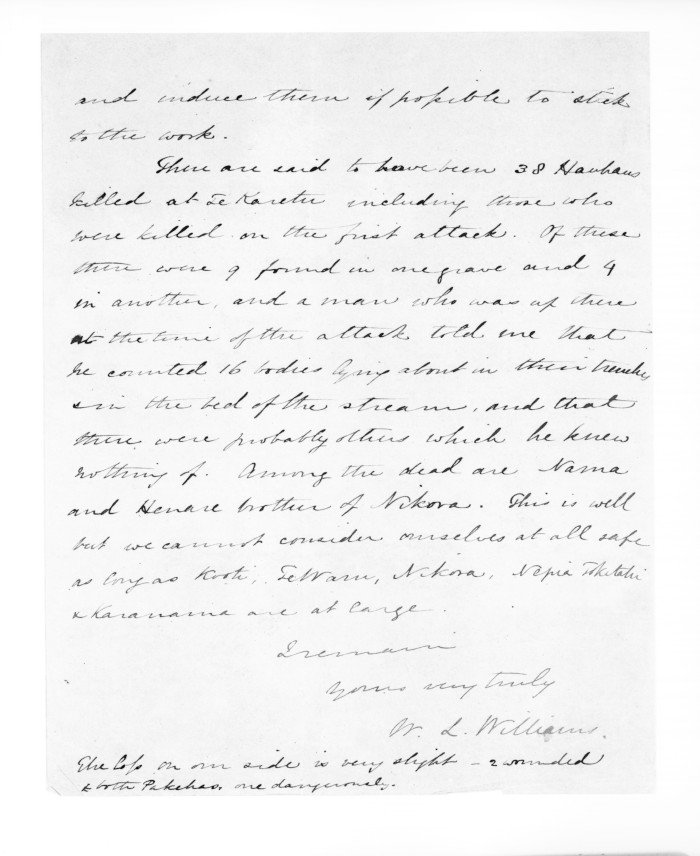 and induce them if possible to stick
to the work.
There are said to have been 38 Hauhaus
killed at Te Karetu including those who
were killed on the first attack. Of these
there were 9 found in one grave and 4
in another, and a man who was up there
at the time of the attack told me that
he counted 16 bodies lying about in their trenches
& in the bed of the stream, and that
there were probably others which he knew
nothing of. Among the dead are Nama
and Henare brother of Nikora. This is well
but we cannot consider ourselves at all safe
as long as Kooti, Te Waru, Nikora, Nepia Tokitahi
& Karanama are at large.
I remain
Yours very truly
W. L. Williams.
The loss on our side is very slight – 2 wounded
& both Pakehas, one dangerously.